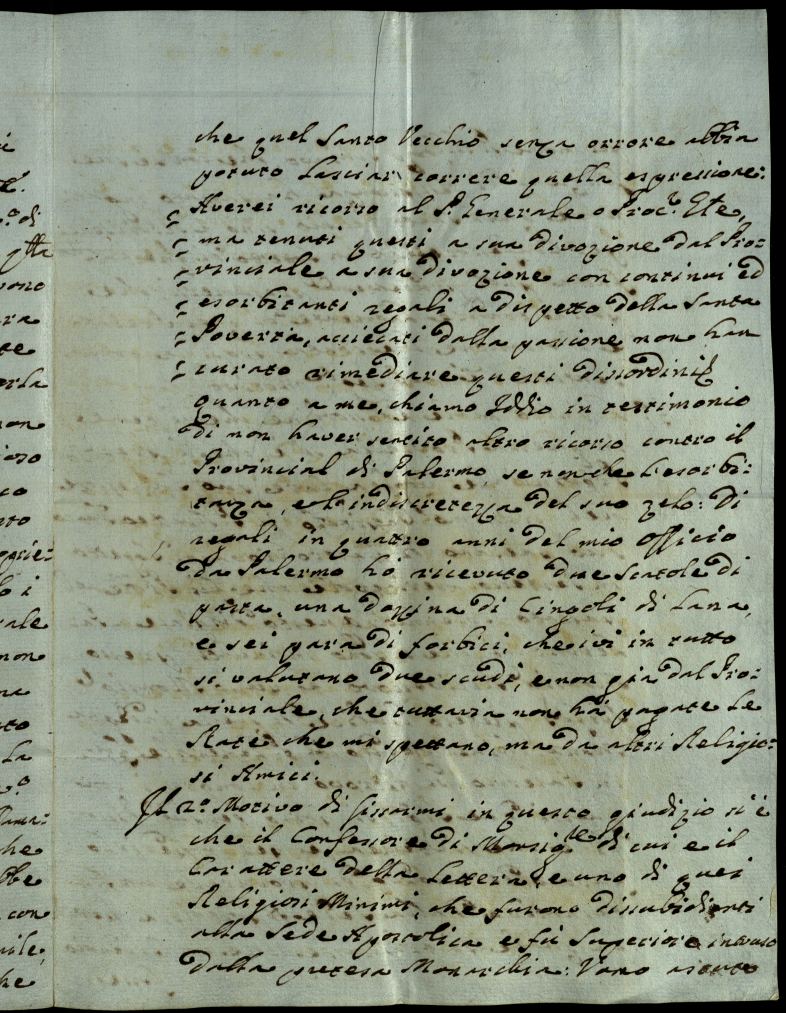 che quel Santo Vecchio senza orrore abbia
potuto lasciar correre quella espressione:
Averei ricorso al P. Generale o Proc.e Ete,
ma tenuti questi a sua divozione dal Pro=
vinciale a sua divozione con continui ed
esorbitanti regali a dispetto della Santa
Povertà, acciecati dalla passione non han
curato rimediare questi disordini
quanto a me, chiamo Iddio in testimonio
di non haver sentito altro ricorso contro il
Provincial di Palermo, se non che l'esorbi=
tanza, e l'indiscretezza del suo zelo: Di
regali in quattro anni del mio officio
da Palermo hò ricevuto due scatole di
pasta, una dozzina di Cingoli di lana,
e sei para di forbici, che ivi in tutto
si valutano due scudi, e non già dal Pro=
vinciale, che tuttavia non hà pagate le
Rate che mi spettano, ma da altri Religio=
si Amici.
Il 2.o Motivo di fissarmi in questo giudizio si è
che il Confessore di Monsig.re di cui e il
Carattere della Lettera, e uno di quei
Religiosi Minimi, che furono disubidienti
alla Sede Apostolica e fù Superiore intruso
dalla pretesa Monarchia: Vomo astuto
i
o di
qtta
vono
ra
te
orla
non
ioso
co
nto
oprie=
lo i
rale
non
na
to
la
he
bbe
con
uile,
he